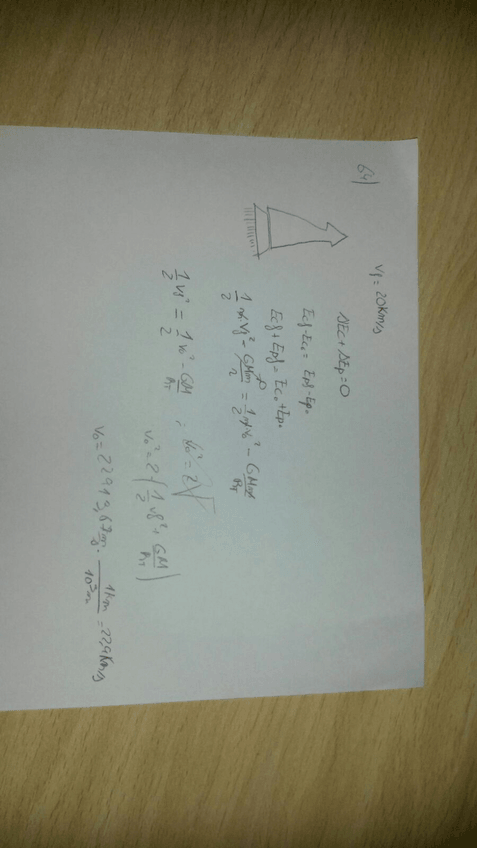 64)
Vf = 20Km/s
ΔEc + ΔEp = 0
Ecf - Eco = Epf - Epo
Ecf + Epf = Eco + Epo
1/2 m Vf² - GMm/r = 1/2 m Vo² - GMm/RT
1/2 Vf² = 1/2 Vo² - GM/RT ; Vo² = 2√
Vo² = 2(1/2 Vf² + GM/RT)
Vo = 22919,67 m/s · 1Km/10³m = 22,9Km/s